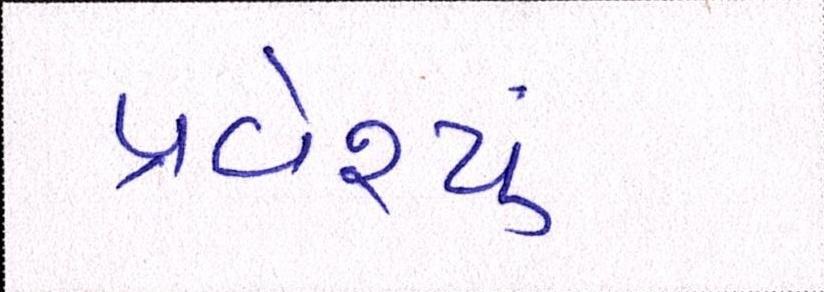 પ્રવેશ્યું